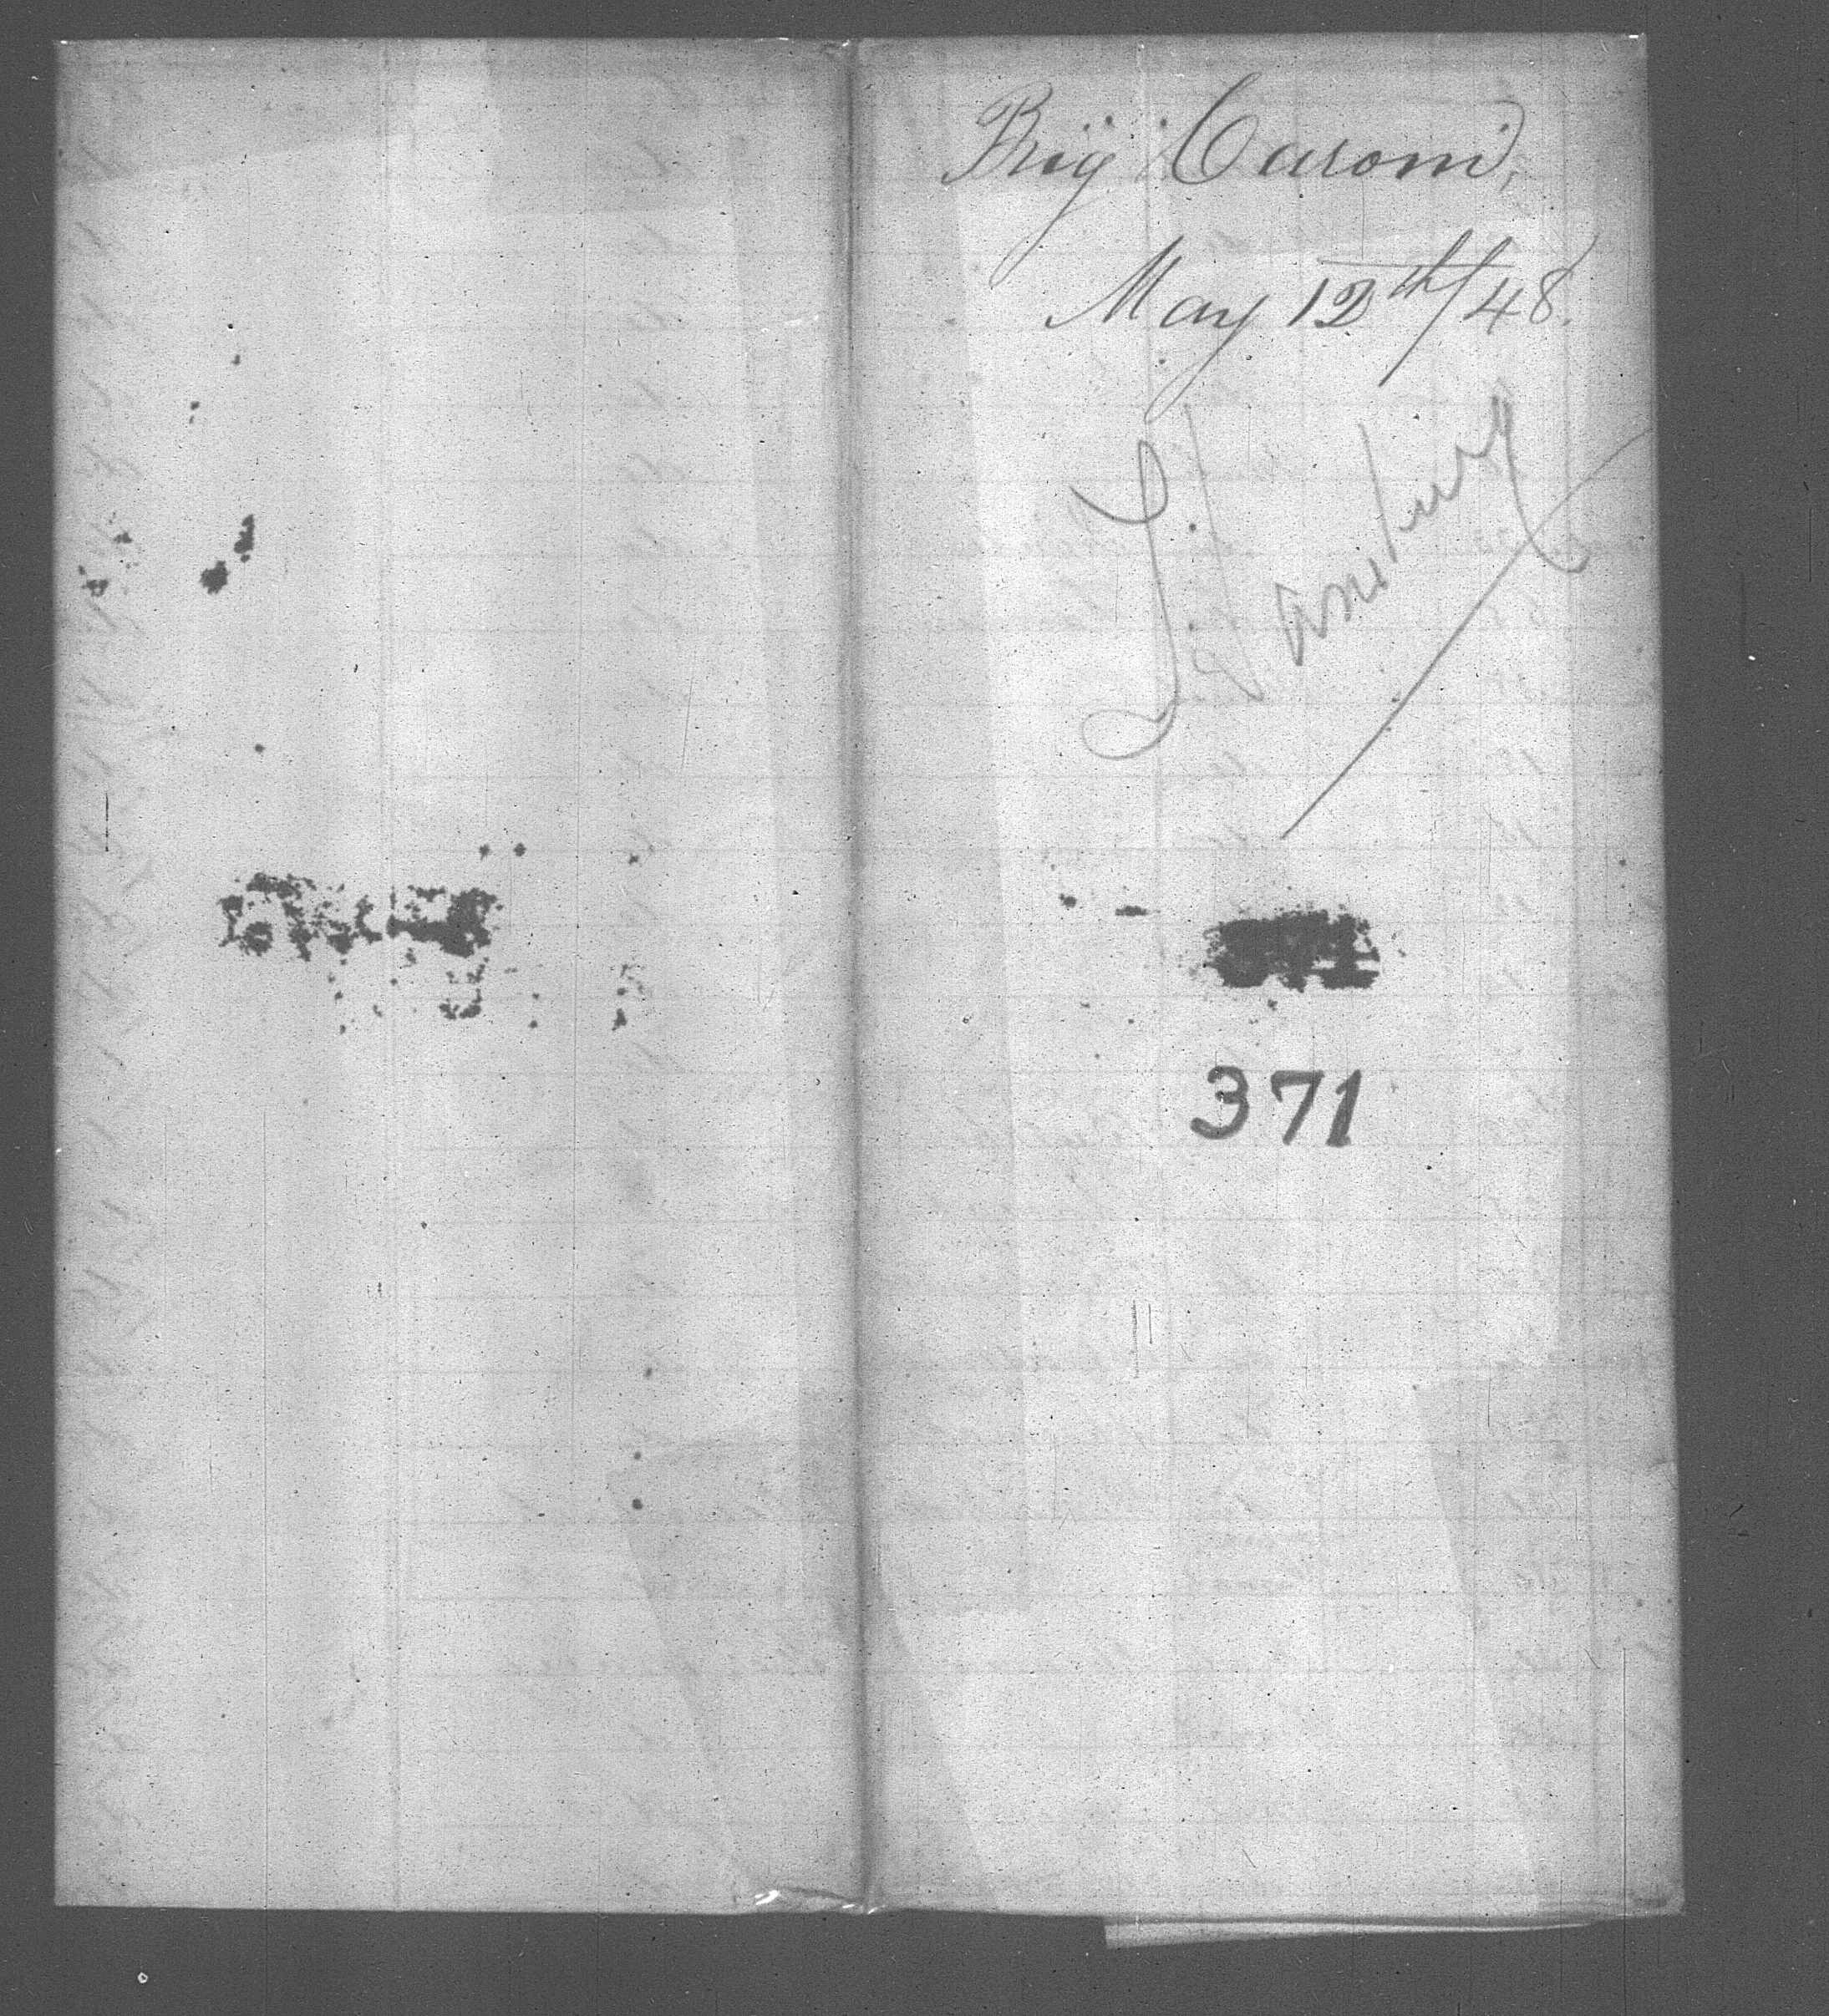 Brig Caroni,
May 12th/48.
Hamburg
371